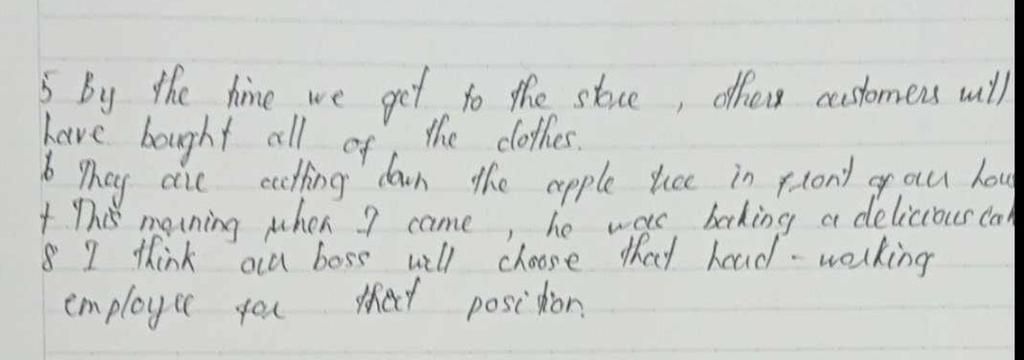 5 By the time we get to the store, others customers will
have bought all of the clothes.
6 They are cutting down the apple tree in front of our hou
7 This morning when I came, he was baking a delicious cak
8 I think our boss will choose that hard-working
employee for that position.